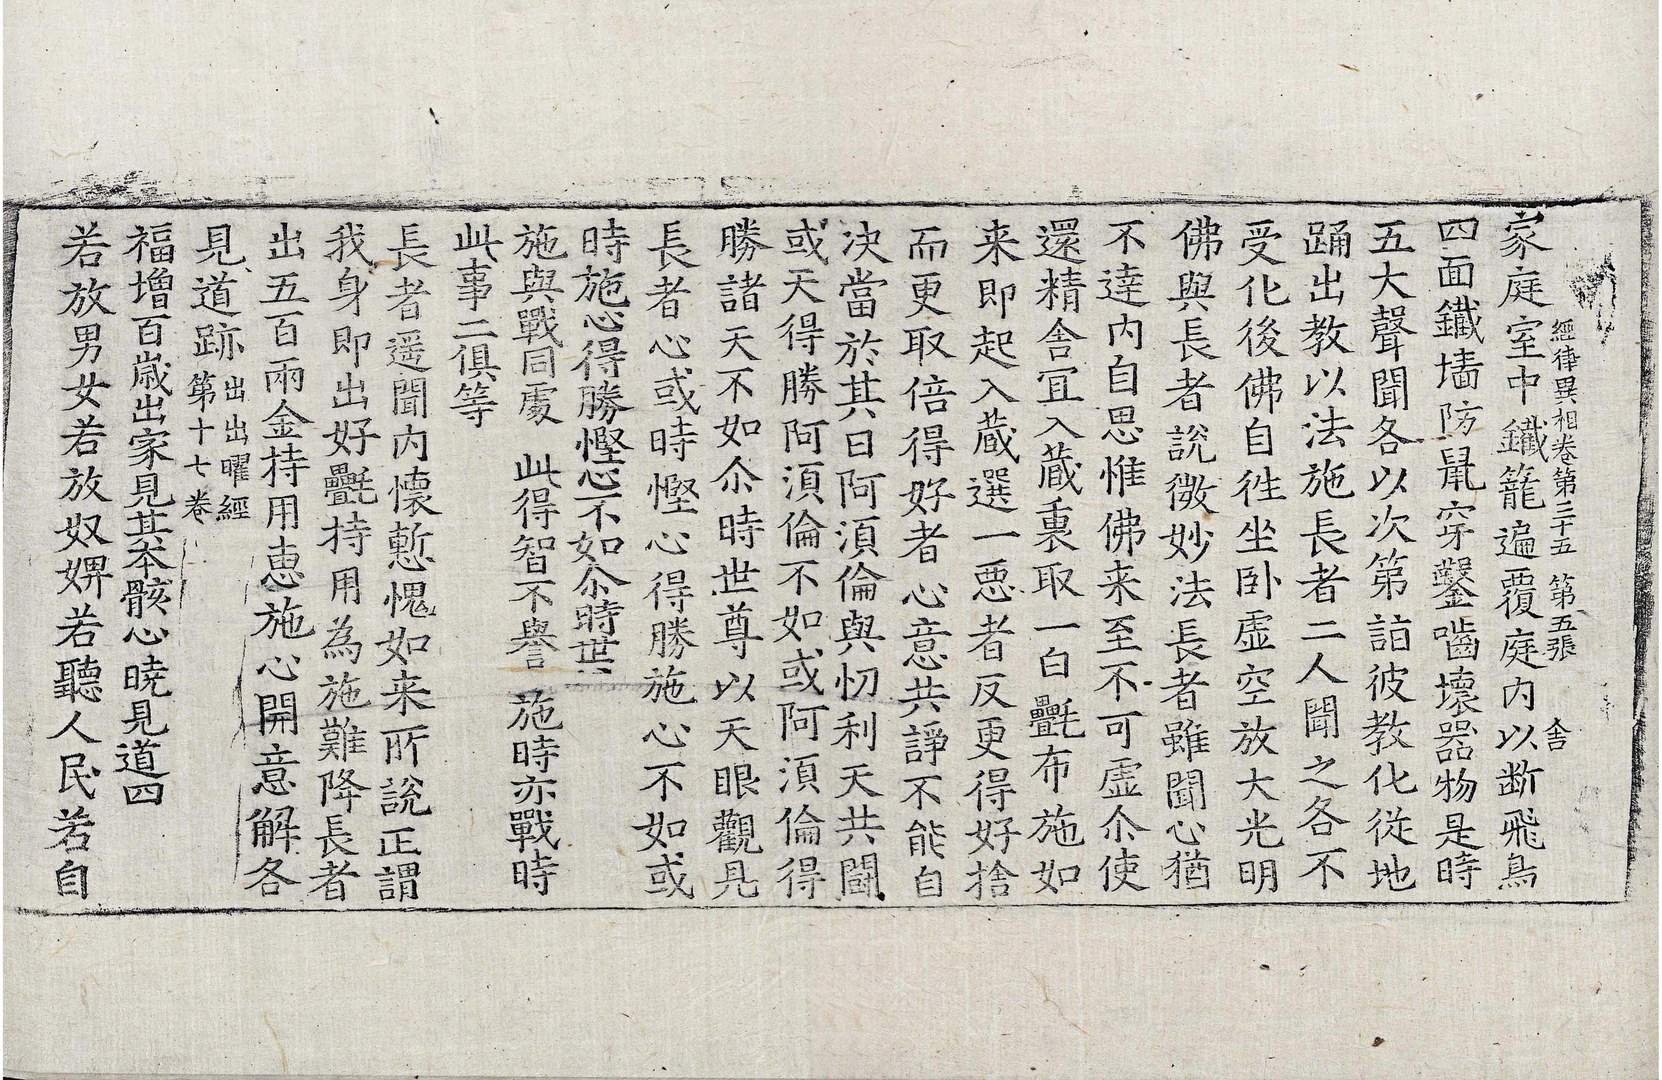 經律異相卷第三十五 第五張 舍
家庭室中鐵籠遍覆庭內以断飛鳥
四面鐵墻防鼠穿鑿嚙壞器物是時
五大聲聞各以次第詣彼教化從地
踊出教以法施長者二人聞之各不
受化後佛自徃坐卧虛空放大光明
佛與長者說微妙法長者雖聞心猶
不達內自思惟佛来至不可虛尒使
還精舍冝入蔵裏取一白㲲布施如
来即起入蔵選一惡者反更得好捨
而更取倍得好者心意共諍不能自
決當於其日阿湏倫與忉利天共鬪
或天得勝阿湏倫不如或阿湏倫得
勝諸天不如尒時世尊以天眼觀見
長者心或時慳心得勝施心不如或
時施心得勝慳心不如尒時世
施與戰同處 此得智不譽 施時亦戰時
此事二俱等
長者遥聞內懷慙愧如来所說正謂
我身即出好㲲持用為施難降長者
出五百兩金持用恵施心開意解各
見道跡出出曜經第十七卷
福增百歳出家見其本骸心曉見道四
若放男女若放奴婢若聽人民若自